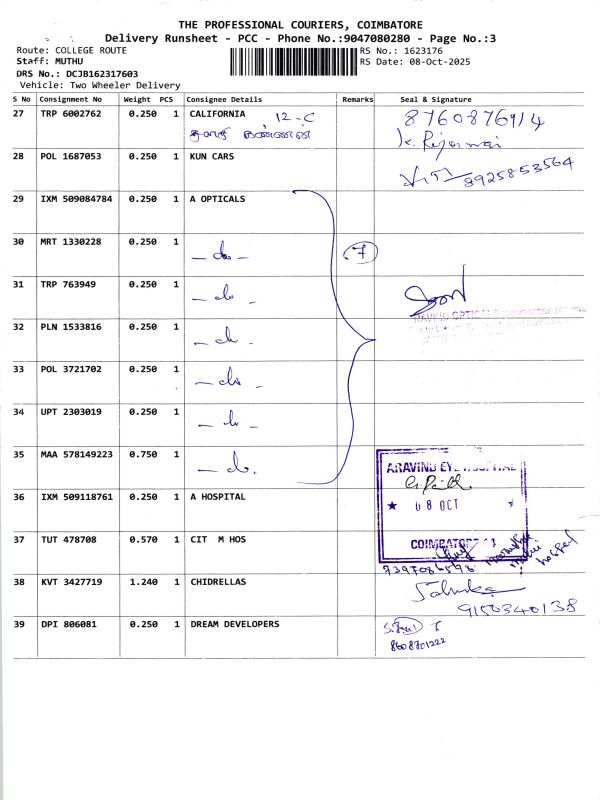 THE PROFESSIONAL COURIERS, COIMBATORE
Delivery Runsheet - PCC - Phone No.:9047080280 - Page No.:3
Route: COLLEGE ROUTE RS No.: 1623176
Staff: MUTHU RS Date: 08-Oct-2025
DRS No.: DCJB162317603
Vehicle: Two Wheeler Delivery
S No Consignment No Weight PCS Consignee Details Remarks Seal & Signature
27 TRP 6002762 0.250 1 CALIFORNIA 12-C
28 POL 1687053 0.250 1 KUN CARS 8925853564
29 IXM 509084784 0.250 1 A OPTICALS
30 MRT 1330228 0.250 1 - do - 7
31 TRP 763949 0.250 1 - do -
32 PLN 1533816 0.250 1 - do -
33 POL 3721702 0.250 1 - do -
34 UPT 2303019 0.250 1 - do -
35 MAA 578149223 0.750 1 - do. ARAVIND EYE HOSPITAL
36 IXM 509118761 0.250 1 A HOSPITAL 08 OCT
37 TUT 478708 0.570 1 CIT M HOS COIMBATORE
hospital
38 KVT 3427719 1.240 1 CHIDRELLAS
9150340138
39 DPI 806081 0.250 1 DREAM DEVELOPERS
8608701222